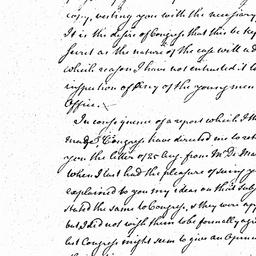 copy, vesting you with the necessary
It is the desire of Congress that this be kep
secret as the nature of the case will ad
which reason I have not entrusted it to
inspection of any of the young men
Office.
In consequence of a report which I th
made Congress have directed me to ret
you the letter of 25 Aug. from Mr De Ma
when I last had the pleasure of seing yo
explained to you my ideas on that subj
stated the same to Congress, & they were app
but did not wish them to be formally sig
lest Congress might seem to give an Opinion